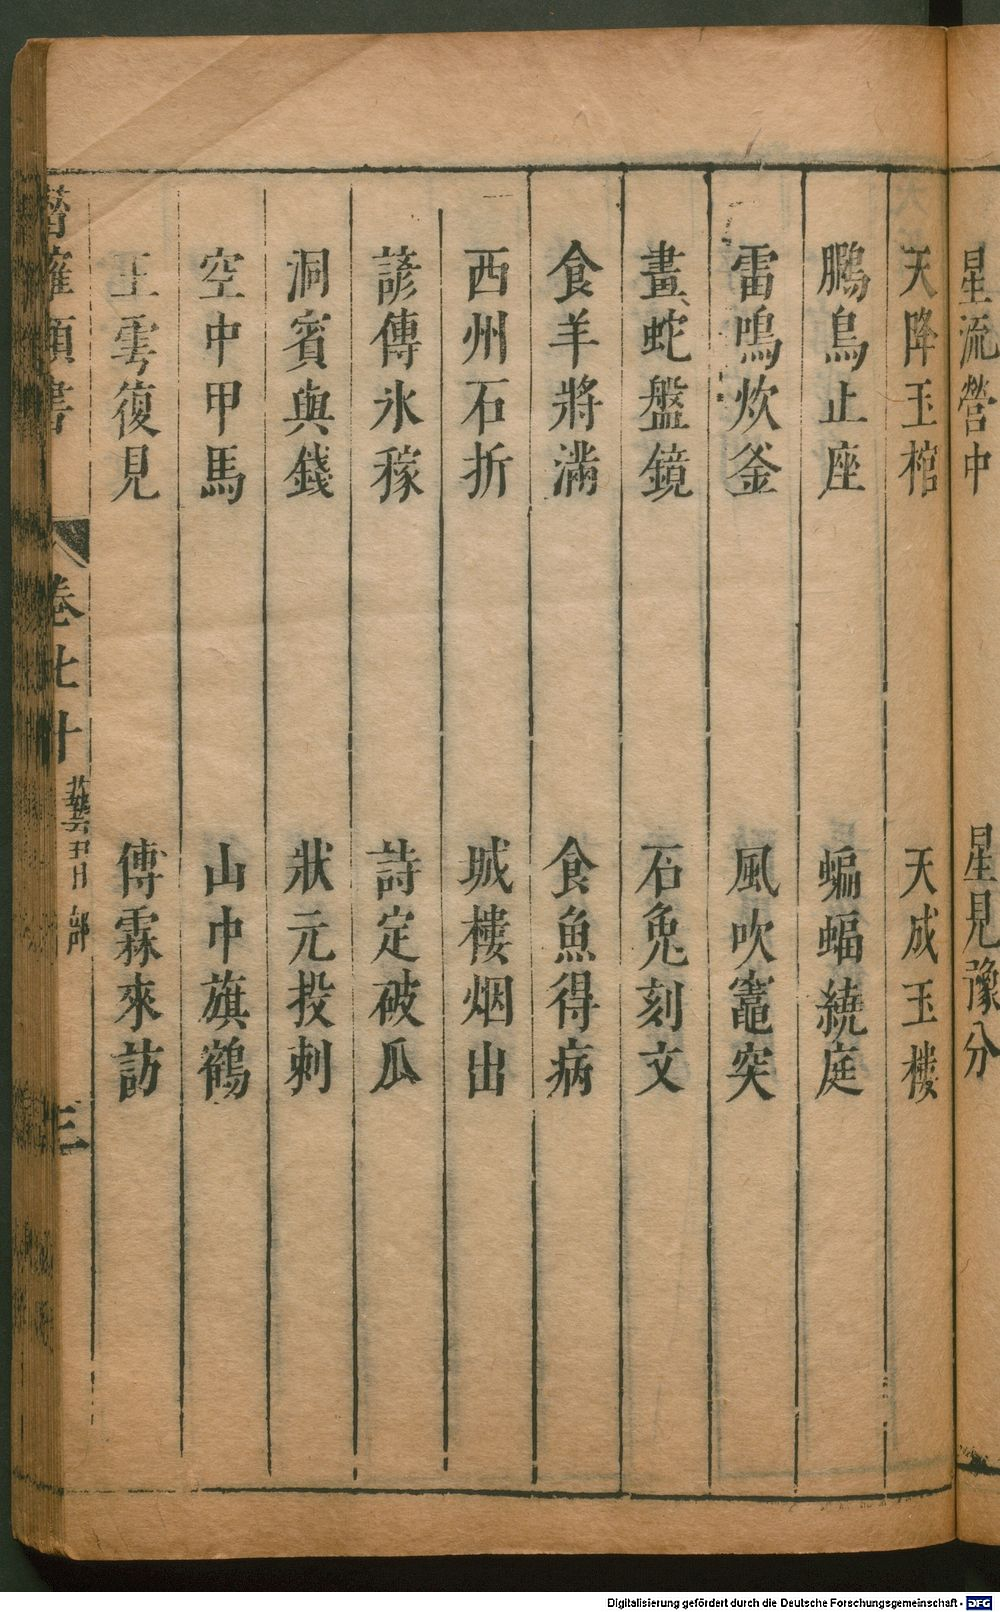 星流營中　星見豫分
天降玉棺　天成玉樓
鵬鳥止座　蝙蝠繞庭
雷鳴炊釜　風吹竈突
畫蛇盤鏡　石兔刻文
食羊將滿　食魚得病
西州石折　城樓烟出
諺傳氷稼　詩定破瓜
洞賓與錢　狀元投刺
空中甲馬　山中旗鶴
王雲復見　傅霖來訪
類書　卷七十　部　三
Digitalisierung gefördert durch die Deutsche Forschungsgemeinschaft - DFG